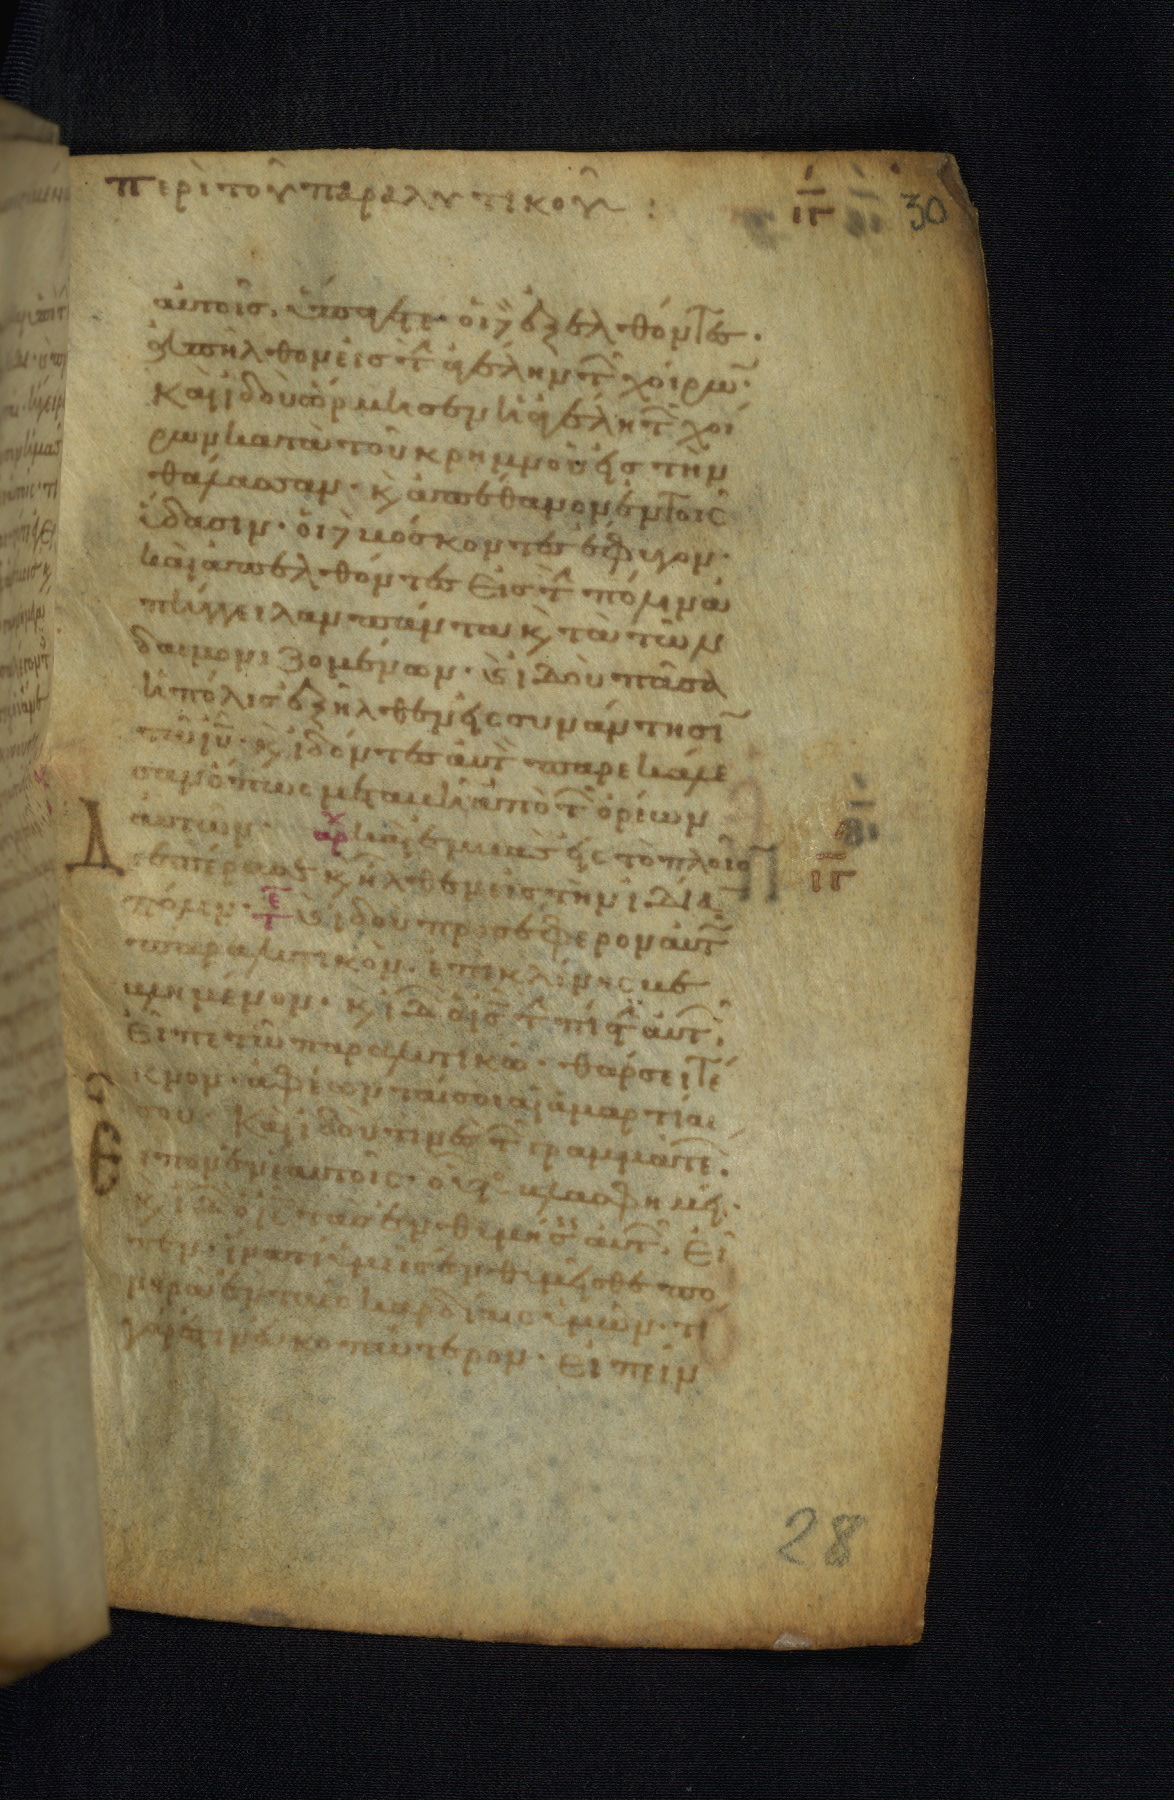 περὶ τοῦ παραλυτικοῦ :
ιγ 30
αὐτοῖς. ὑπάγετε. οἱ δὲ ἐξελθόντες.
ἀπῆλθον εἰς τ ἀγέλην τ χοίρω.
Καὶ ἰδοὺ ὥρμησεν ἡ ἀγέλη τ χοί
ρων κατὰ τοῦ κρημνοῦ εἰς τὴν
θάλασσαν. κ ἀπέθανον ἐν τοῖς
ὕδασιν. οἱ δὲ βόσκοντες ἔφυγον.
καὶ ἀπελθόντες εἰς τ πόλιν ἀ
πήγγειλαν πάντα κ τὰ τῶν
δαιμονιζομένων. κ ἰδοὺ πᾶσα
ἡ πόλις ἐξῆλθεν εἰς συνάντησι
τῶ ιυ. κ ἰδόντες αὐτ παρεκάλε
σαν ὅπως μεταβῆ ἀπὸ τ ὁρίων
αὐτῶν. αρχ καὶ ἐμβὰς εἰς τὸ πλοῖο
Διεπέρασε κ ἦλθεν εἰς τὴν ἰδία
ιγ
πόλιν. κ ἰδοὺ προσέφερον αὐτ
παραλυτικὸν. ἐπὶ κλίνης βε
βλημένον. κ ἰδ ὁ ις τ πίστ αὐτ.
εἶπε τῶ παραλυτικῶ. θάρσει τέ
κνον. ἀφέωνταί σοι αἱ ἁμαρτίαι
σου. Καὶ ἰδού τινες τ γραμματέ.
Εἶπον ἐν ἑαυτοῖς. οὗτο βλασφημεῖ.
κ ἰδ ὁ ις τὰς ἐνθυμήσ αὐτ. Εἶ
πεν. ἱνατί ὑμεῖς ἐνθυμεῖσθε πο
νηρὰ ἐν ταῖς καρδίαις ὑμῶν. τί
γάρ ἐστιν εὐκοπώτερον. εἰπεῖν
28